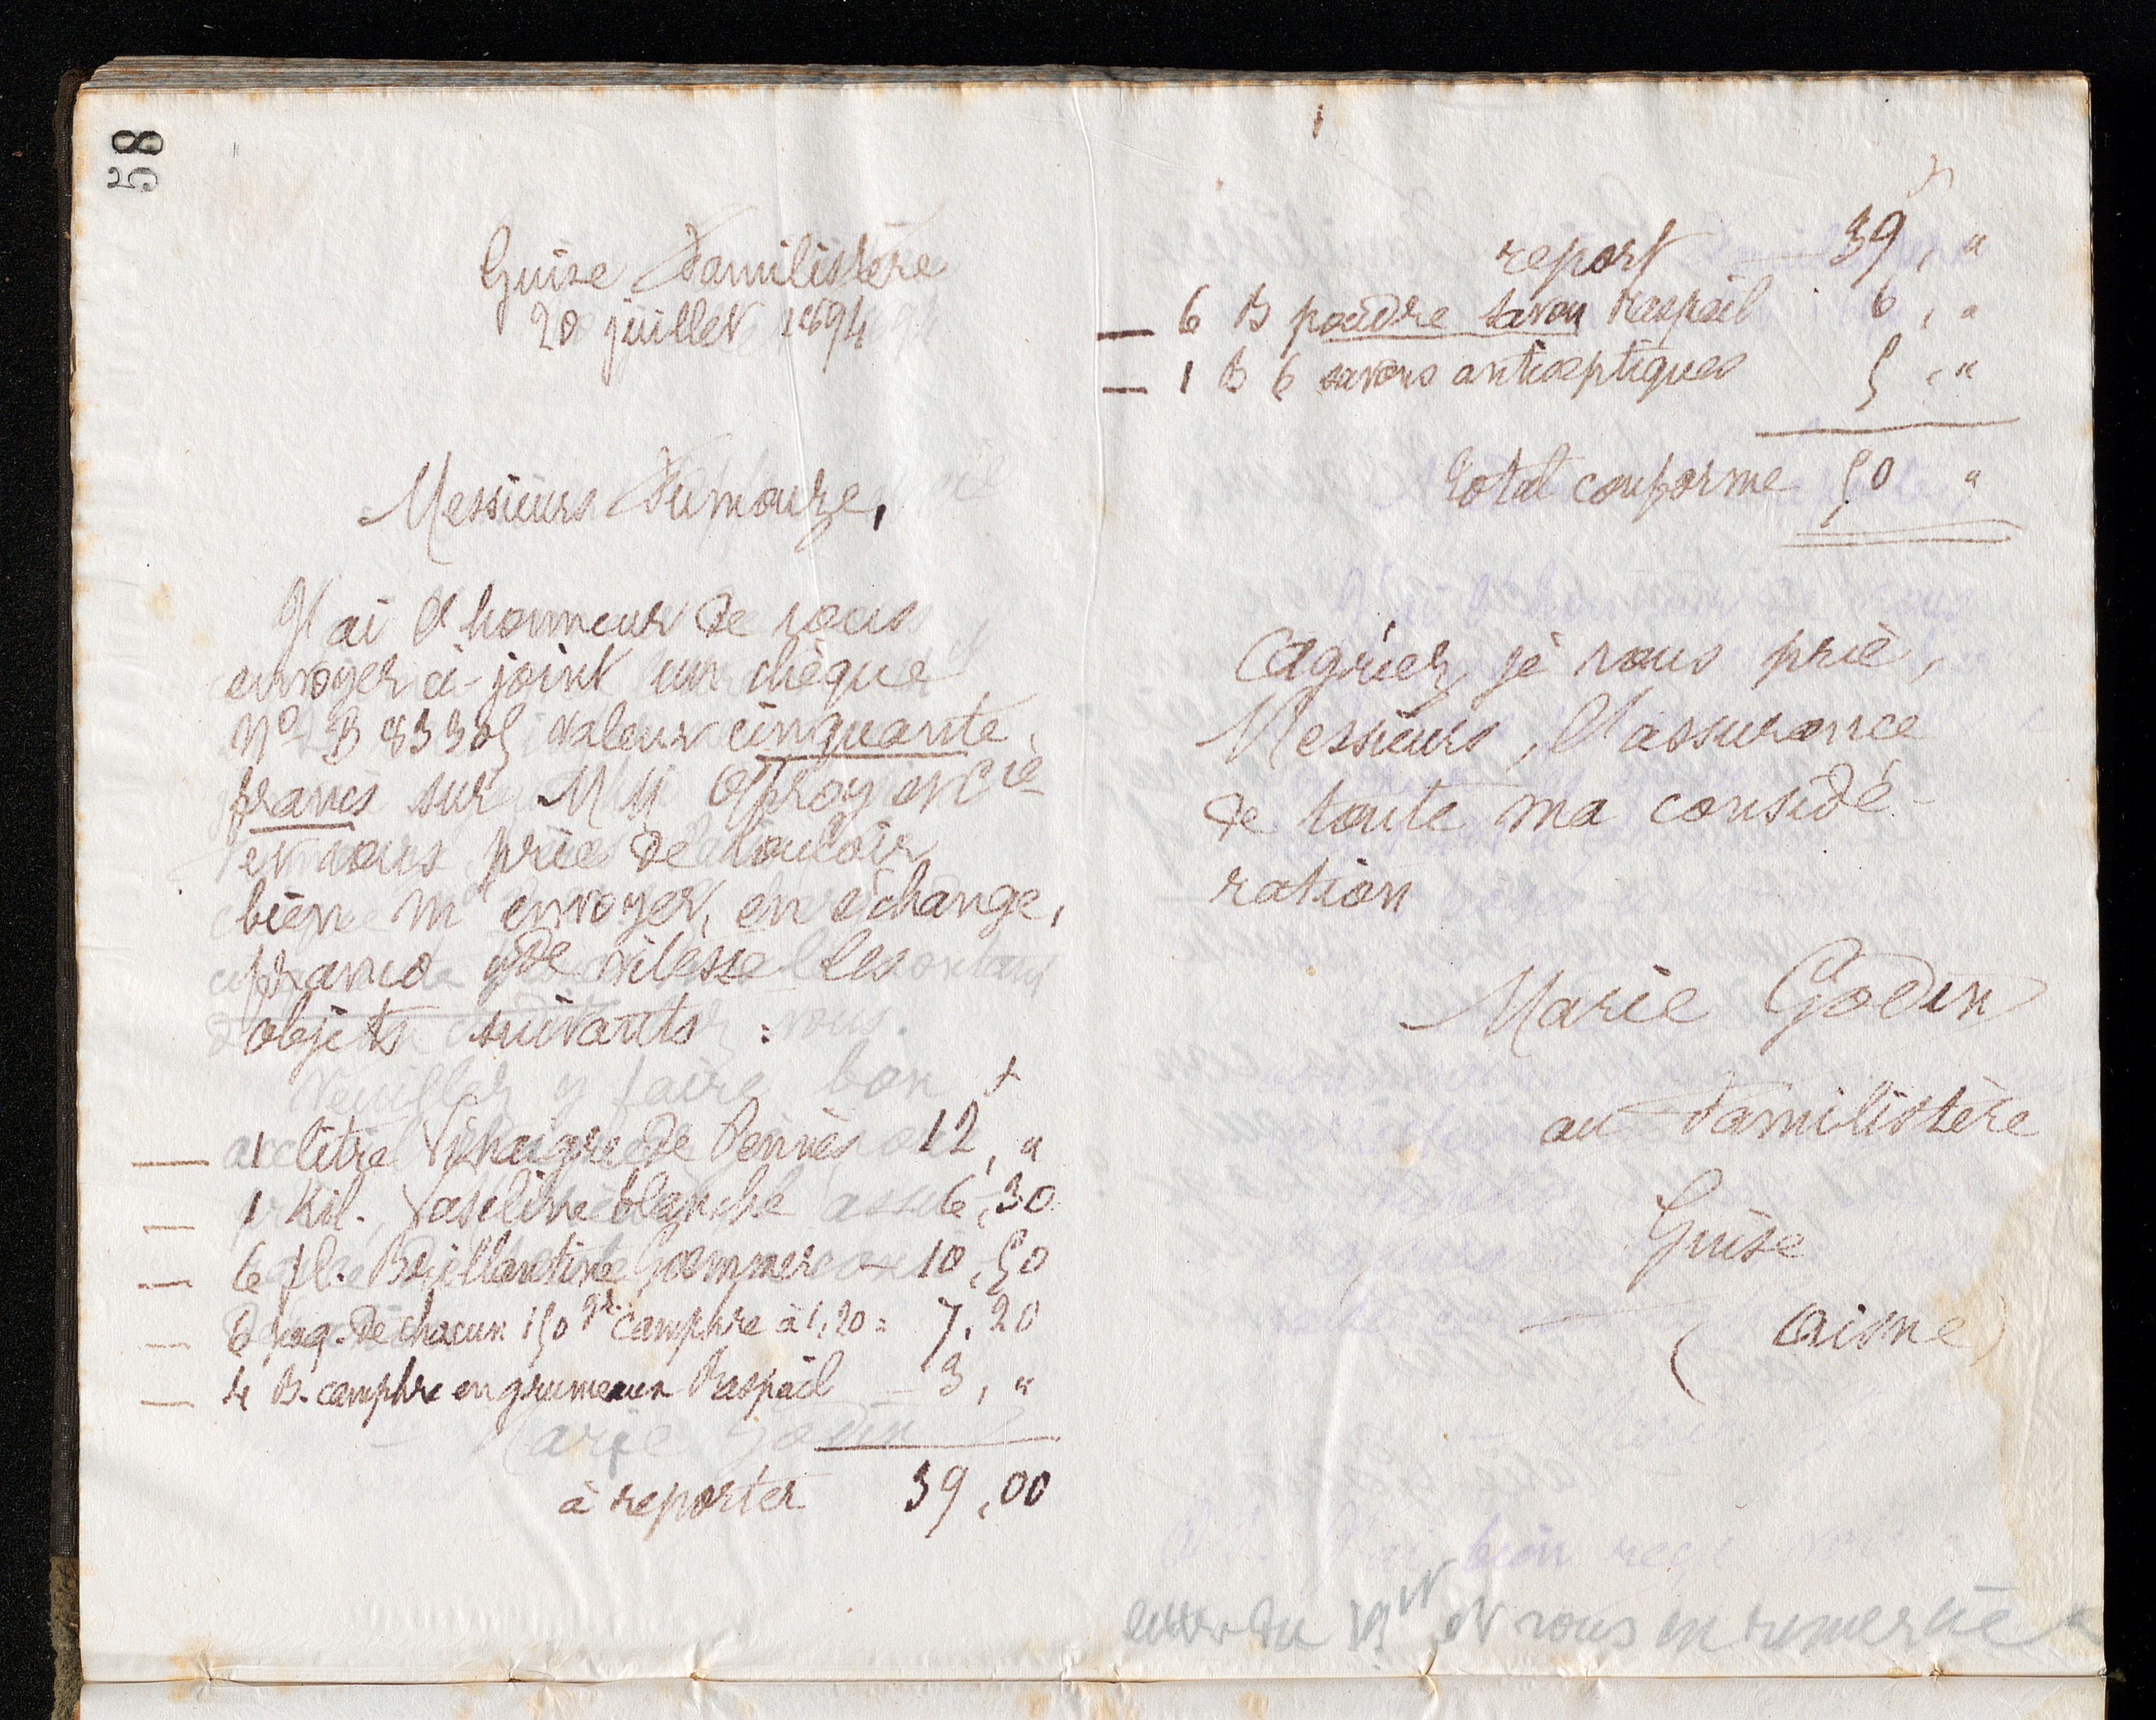 58
Guise Familistère
20 juillet 1894
Messieurs Fumouze,
J'ai l'honneur de vous
envoyer ci-joint un chèque
No B 83305 valeur cinquante
francs sur MM Offroy et Cie
et vous prie de vouloir
bien m'envoyer, en échange,
franco gde vitesse les
objets suivants :
f
— 1 litre Vinaigre de Pennès 12, "
— 1 Kil. Vaseline blanche 6,30
— 6 fl. Brillantine 10,50
— 6 paq. de chacun 150 gr. camphre à 1,20 = 7,20
— 4 B. camphre en grumeaux Raspail 3, "
à reporter 39,00
f
report 39, "
— 6 B poudre savon Raspail 6, "
— 1 B 6 savons antiseptiques 5, "
Total conforme 50 "
Agréez, je vous prie,
Messieurs, l'assurance
de toute ma considé-
ration
Marie Godin
au Familistère
Guise
(Aisne)